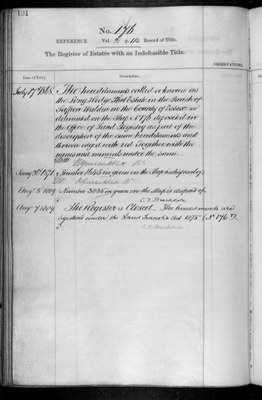 191
No. 176
REFERENCE Vol. Record of Title.
The Register of Estates with an Indefeasible Title.
Date of Entry. Description. OBSERVATIONS.
July 17th 1868. The hereditaments called or known as
the Long Hedge Plot Estate in the Parish of
Saffron Walden in the County of Essex as
delineated on the Map No 176 deposited in
the Office of Land Registry as part of the
description of the same hereditaments and
thereon edged with red Together with the
mines and minerals under the same.
Number in green on the Map is disposed of
Augt 5th 1889 Number in green on the Map is disposed of.
Augt 7 1889 The Register is Closed. The hereditaments are
registered under the Land Transfer Act 1875